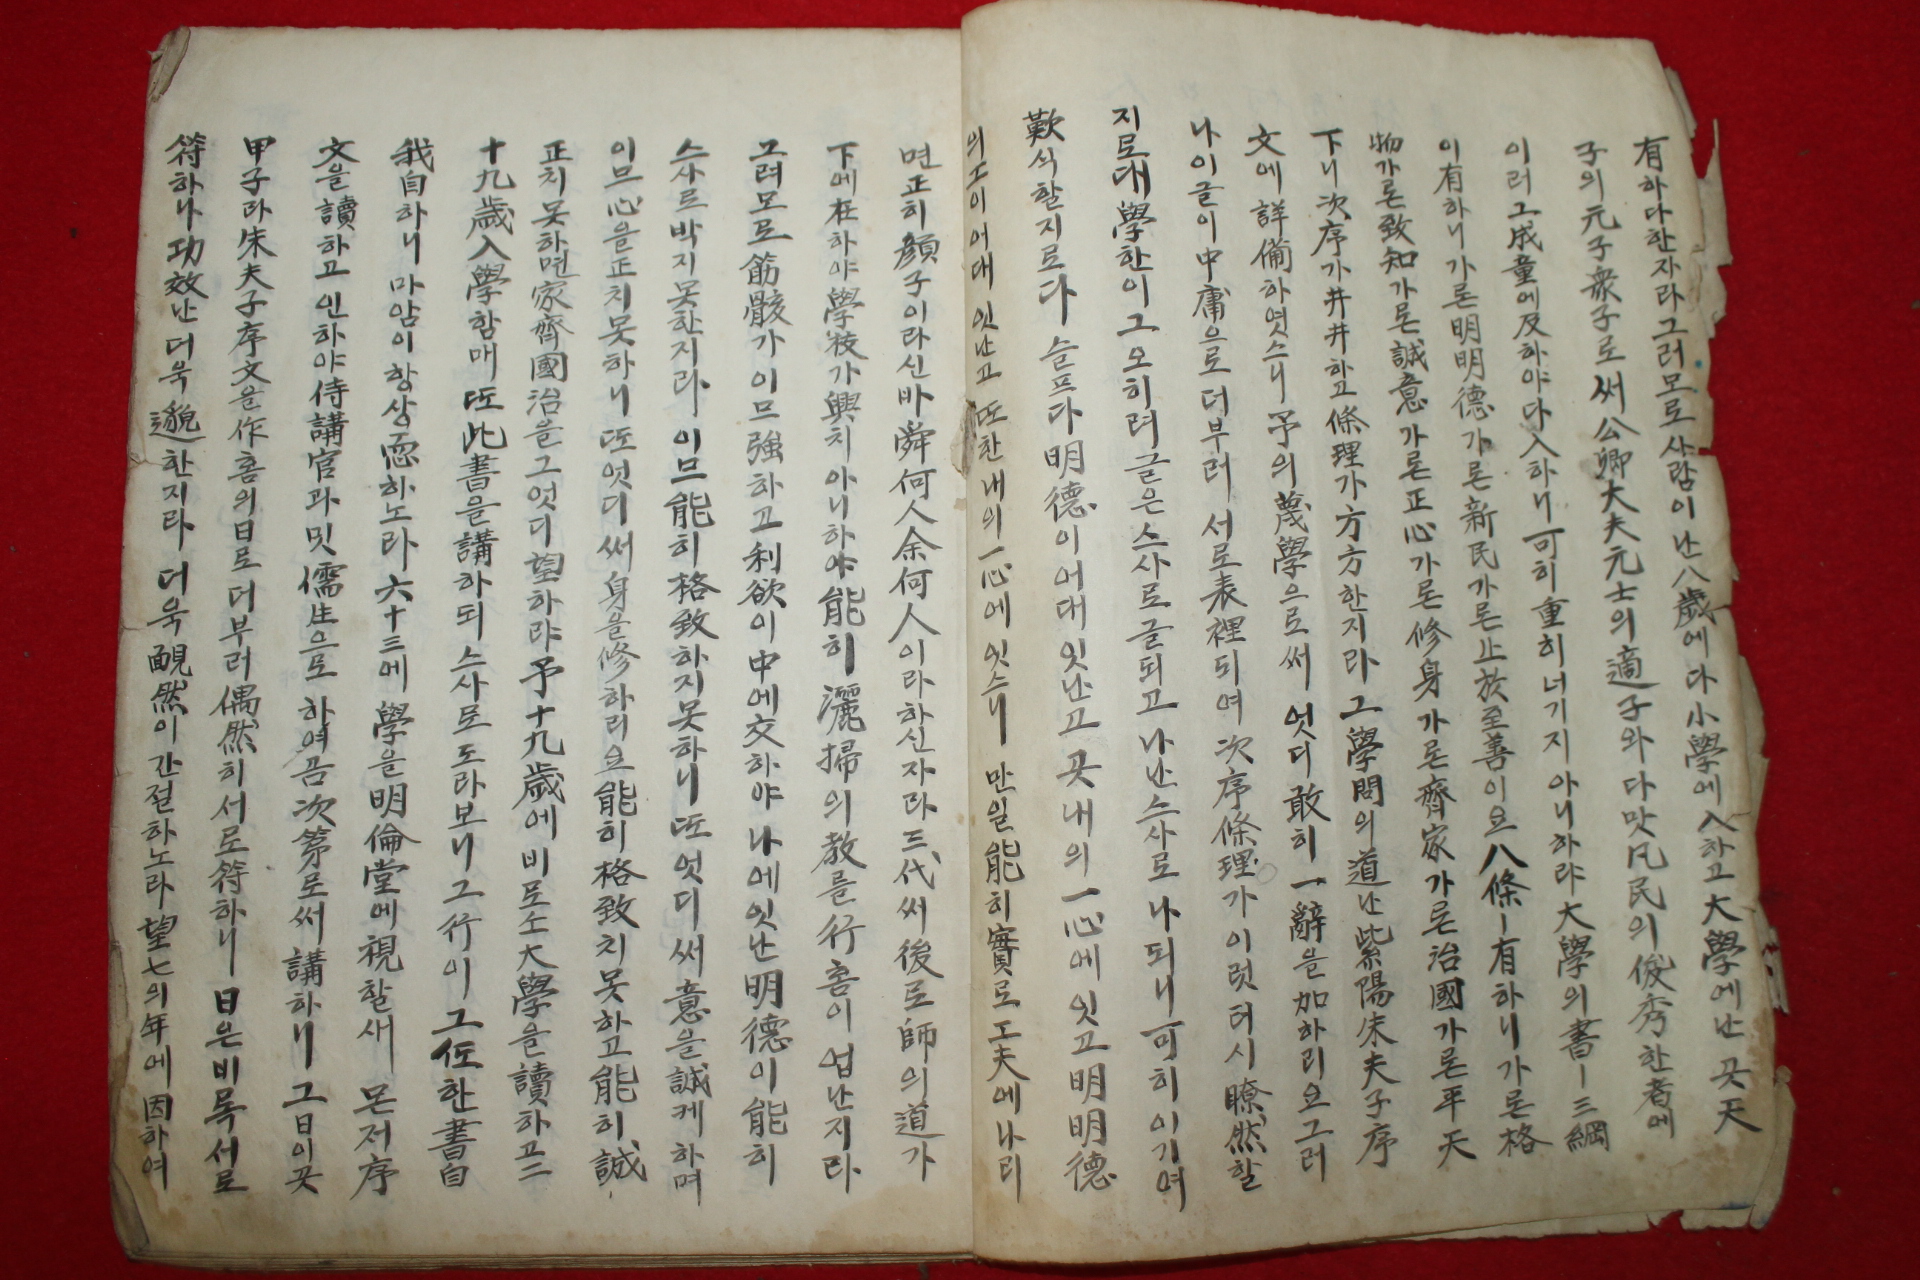 有하다한자라그러모로사람이난八歲에다小學에入하고大學에난곳天
子의元子衆子로써公卿大夫元士의適子와다맛凡民의俊秀한者에
이러그成童에及하야다入하니可히重히너기지아니하랴大學의書ㅣ三綱
이有하니가론明明德가론新民가론止於至善이요八條ㅣ有하니가론格
物가론致知가론誠意가론正心가론修身가론齊家가론治國가론平天
下니次序가井井하고條理가方方한지라그學問의道난紫陽朱夫子序
文에詳備하엿스니予의蔑學으로써엇디敢히一辭을加하리요그러
나이글이中庸으로더부러서로表裡되여次序條理가이럿터시瞭然할
지로대學한이그오히려글은스사로글되고나난스사로나되니可히이기여
歎식할지로다슬프다明德이어대잇난고곳내의一心에잇고明明德
의工이어대잇난고또찬내의一心에잇스니만일能히實로工夫에나리
면正히顔子이라신바舜何人余何人이라하신자라三代써後로師의道가
下에在하야學校가興치아니하야能히灑掃의敎를行홈이업난지라
그려모로筋骸가이므强하고利欲이中에交하야나에잇난明德이能히
스사로박지못한지라이므能히格致하지못하니또엇디써意을誠케하며
이므心을正치못하니또엇디써身을修하리요能히格致치못하고能히誠
正치못하면家齊國治을그엇디望하랴予十九歲에비로소大學을讀하고二
十九歲入學함매또此書을講하되스사로도라보니그行이그伍한書自
我自하니마암이항상恧하노라六十三에學을明倫堂에視할새몬저序
文을讀하고인하야侍講官과밋儒生으로하여곰次第로써講하니그日이곳
甲子라朱夫子序文을作홈의日로더부러偶然히서로符하니日은비록서로
符하나功效난더욱邈한지라더욱靦然이간절하노라望七의年에因하여